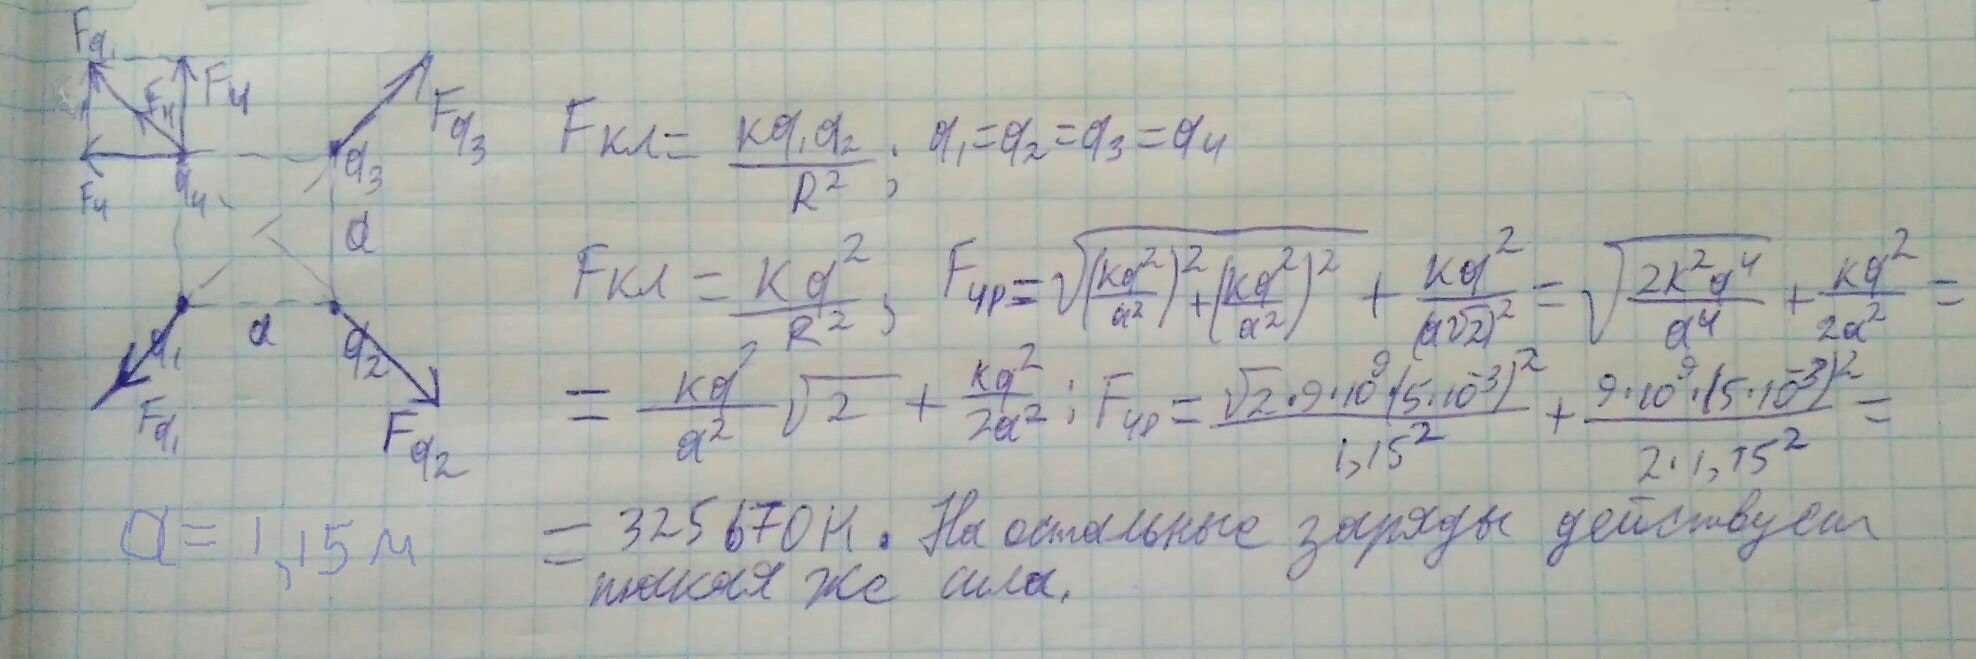 Fq₁ F₄ Fq₃
F₄
F₄ q₄ q₃
a
q₁ a q₂
Fq₁ Fq₂
a = 1,15 м
Fкл = kq₁q₂/R²; q₁=q₂=q₃=q₄
Fкл = kq²/R²; F₄р = √((kq²/a²)² + (kq²/a²)²) + kq²/(a√2)² = √(2k²q⁴/a⁴) + kq²/2a² =
= kq²/a² √2 + kq²/2a²; F₄р = √2·9·10⁹(5·10⁻³)²/1,15² + 9·10⁹·(5·10⁻³)²/2·1,15² =
= 325670 Н. На остальные заряды действует
такая же сила.